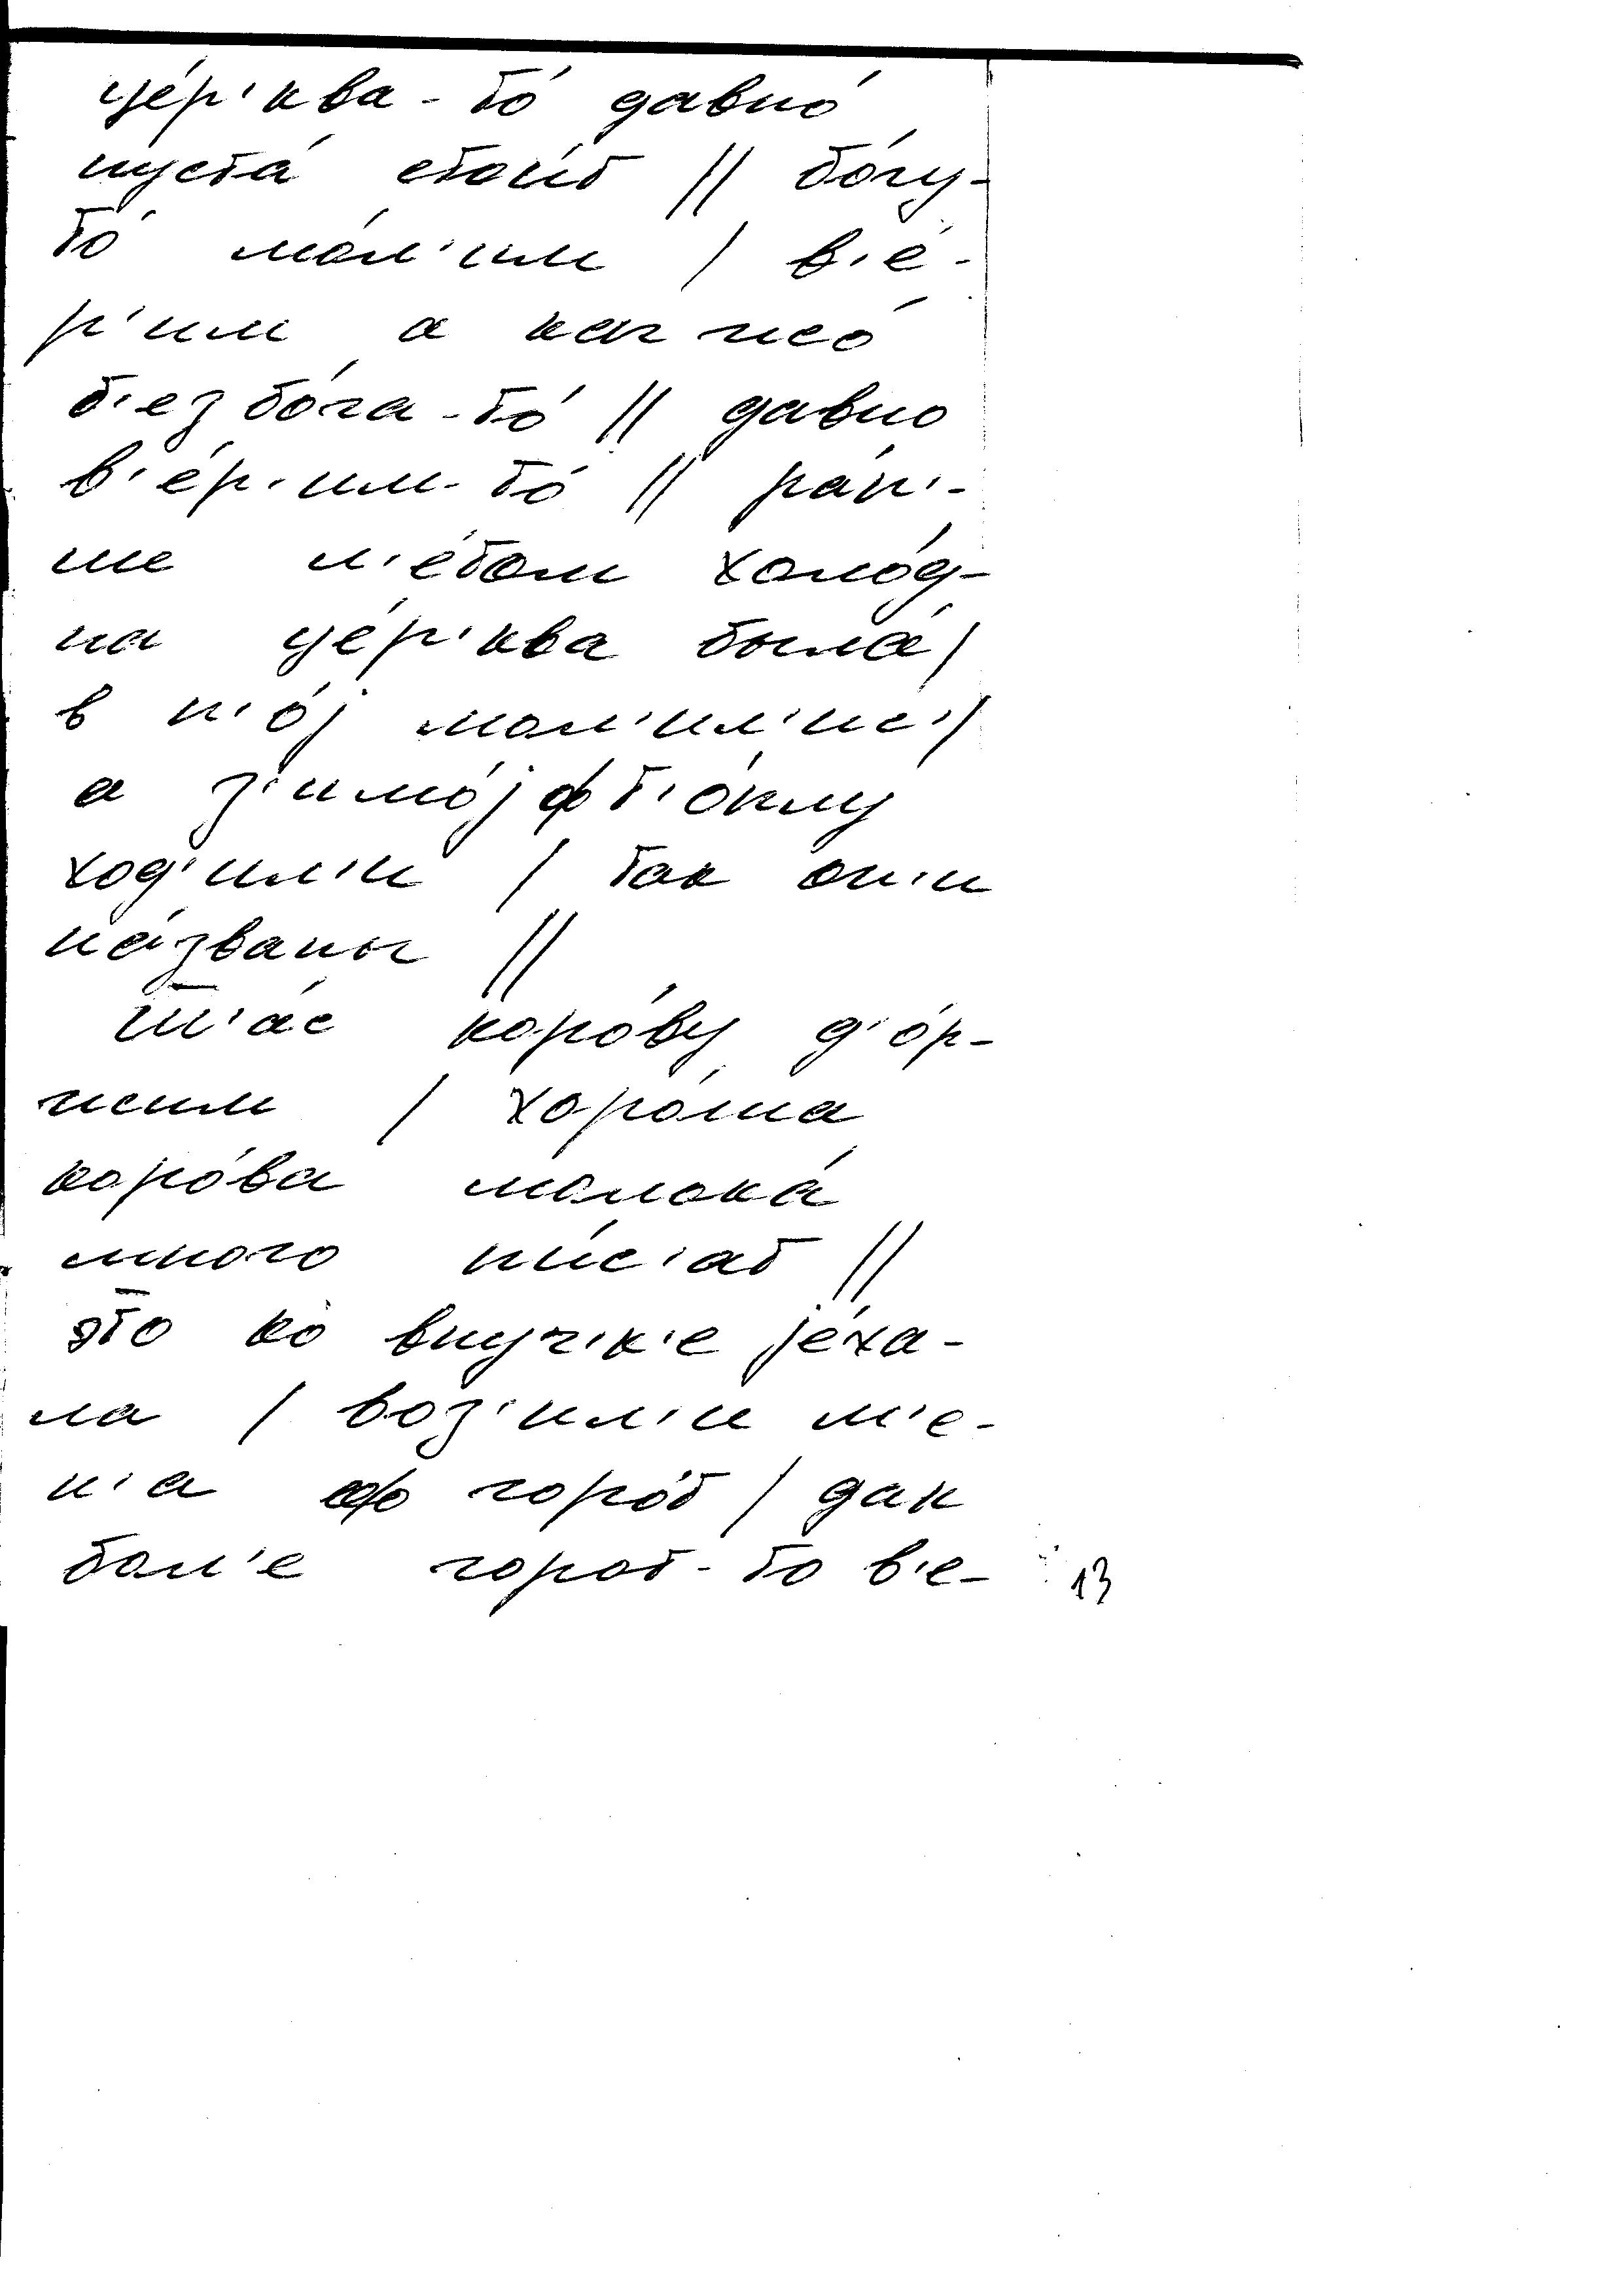 це́р'ква-то́ давно́
пуста́ стои́т // бо́гу-
то́ мо́л'им / в'е́-
р'им а как жо́
б'ез бо́га-то́ // давно
в'е́р'им-то́ // ра́н'-
ше л'е́том холо́д-
на це́р'ква была́ /
в н'о́j мол'ил'ис' /
а з'имо́j ф т'о́плу
ход'ил'и / так он'и
на́званы //
ш'а́с коро́ву д'о́р-
жим / хоро́ша
коро́ва молока́
много но́с'ат //
это ко внуч'к'е jе́ха-
ла / воз'ил'и м'е-
н'а фо горо́т / дак
бол'е горот-то в'е-
13